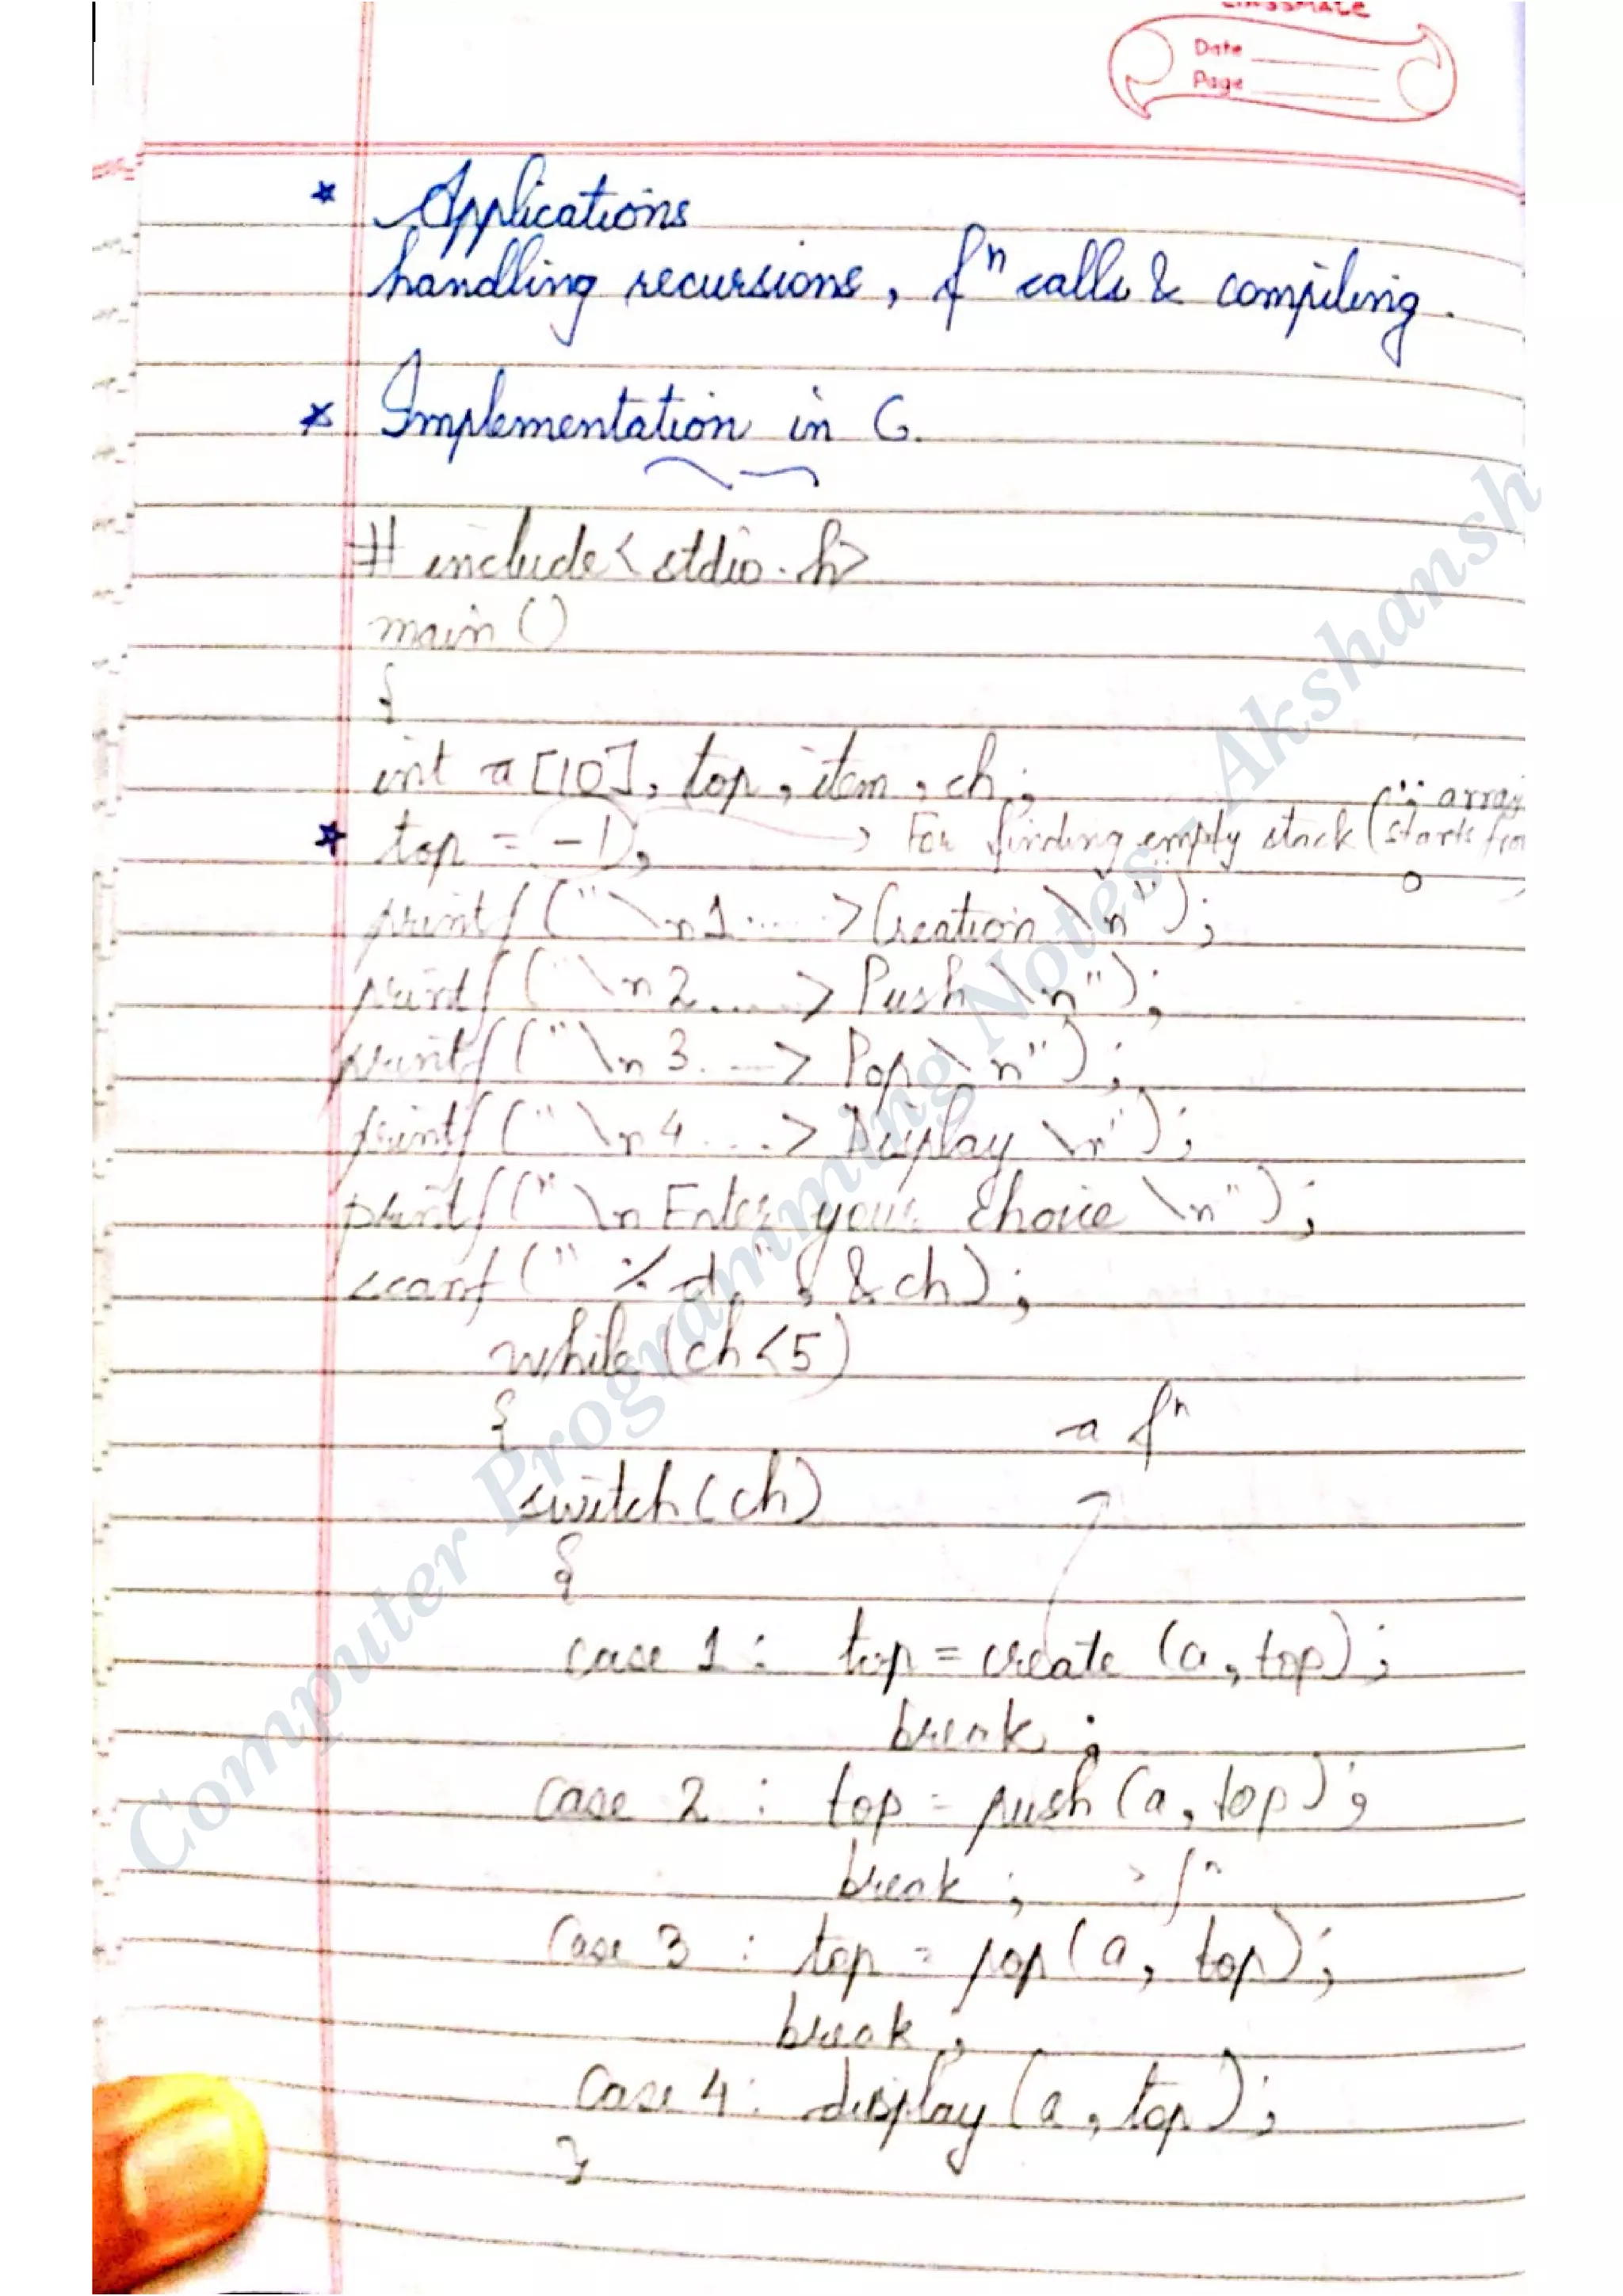 classmate
Date
Page
* Applications
handling recursions, fⁿ calls & compiling.
* Implementation in C.
# include<stdio.h>
main ()
{
int a [10], top, item, ch;
* top = -1; → For finding empty stack (∵ array starts from 0
printf ("\n1.....>Creation \n");
printf ("\n2.....> Push \n");
printf ("\n 3. ...> Pop \n");
printf ("\n4....> Display \n");
printf ("\n Enter your choice \n");
scanf (" %d", &ch);
while (ch<5)
{
a fⁿ
switch (ch)
{
case 1 : top = create (a, top);
break ;
case 2 : top = push (a, top);
break ; > fⁿ
Case 3 : top = pop (a, top);
break ;
Case 4 : display (a, top);
}
Computer Programming Notes Akshansh